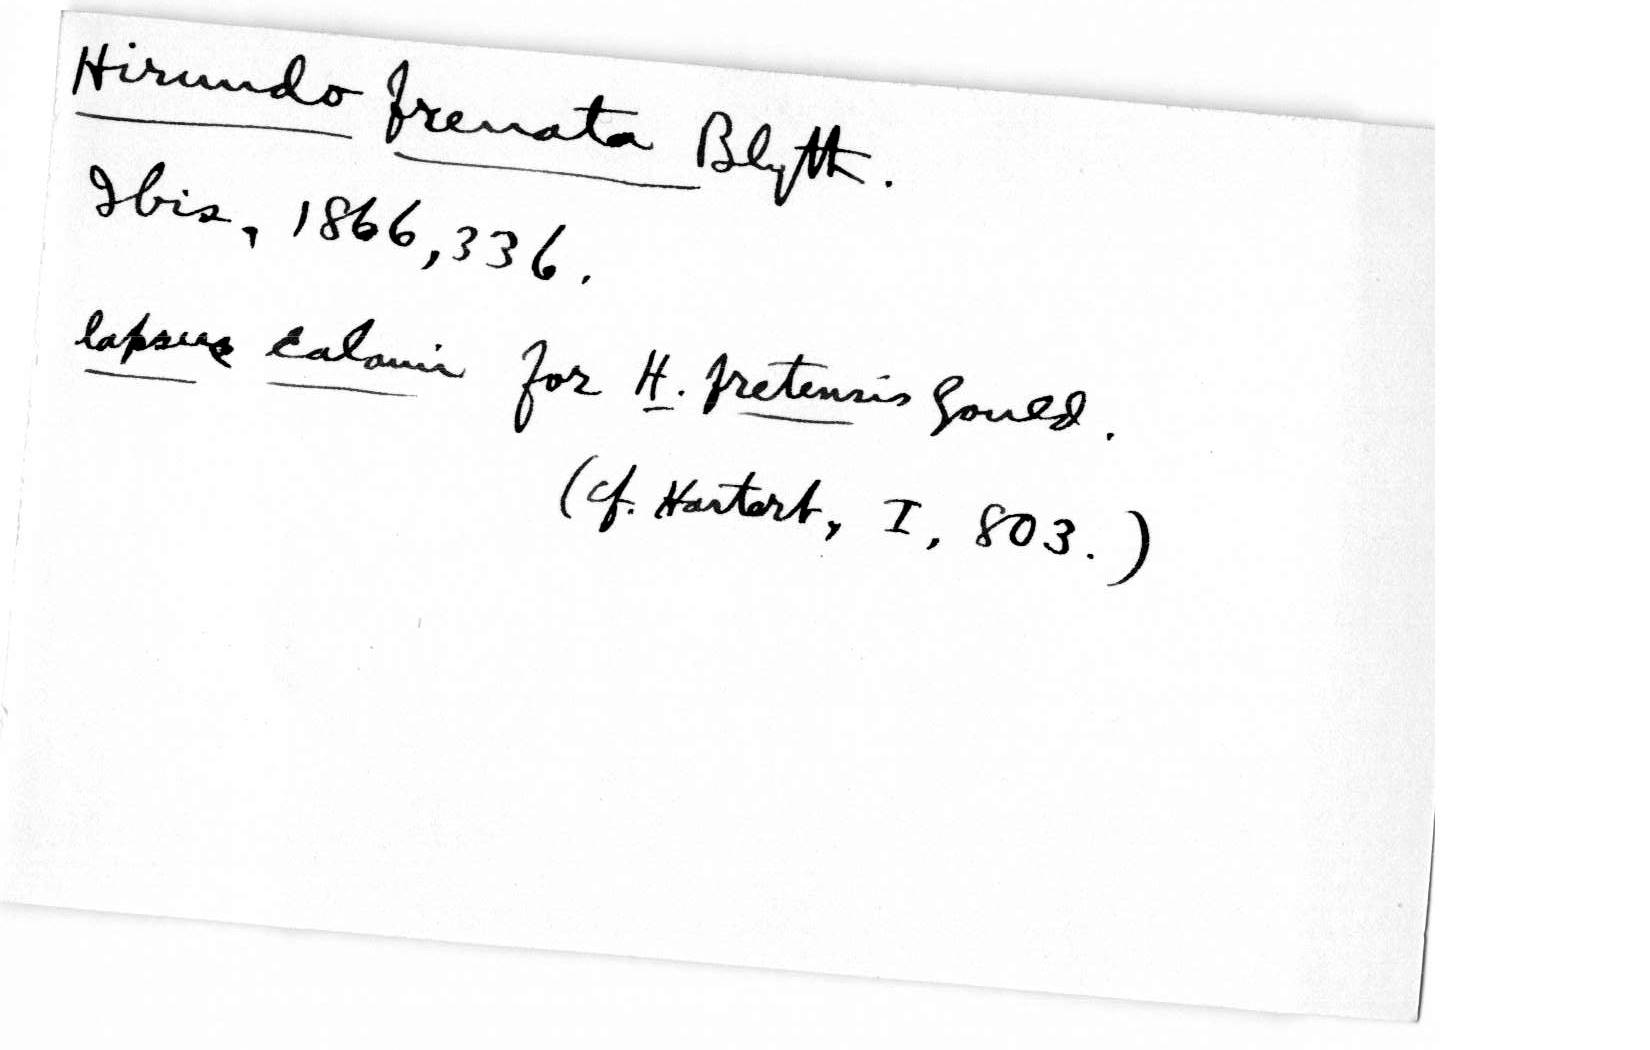 Hirundo frenata Blyth.
Ibis, 1866, 336.
lapsus calami for H. fretensis Gould.
(cf. Hartert, I, 803.)